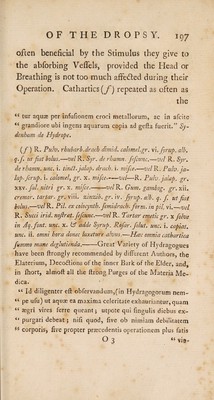 OF THE DROPSY. 197
often beneficial by the Stimulus they give to
the absorbing Vessels, provided the Head or
Breathing is not too much affected during their
Operation. Cathartics (f) repeated as often as
the
“ tur aquæ per infusionem croci metallorum, ac in ascite
“ grandiore ubi ingens aquarum copia ad gesta fuerit.” Sy-
denham de Hydrope.
(f) R. Pulv. rhubarb. drach dimid. calomel. gr. vi. syrup. alb.
q. s. ut fiat bolus.—vel R. Syr. de rhamn. sesunc.—vel R. Syr.
de rhamn. unc. i. tinct. jalap. drach. i. misce.—vel R. Pulv. ja-
lap. scrup. i. calomel. gr. x. misce.—vel—R. Pulv. jalap. gr.
xxv. sal. nitri gr. x. misce.—vel R. Gum. gambog. gr. xii.
cremor. tartar. gr. viii. zinzib. gr. iv. syrup. alb. q. s. ut fiat
bolus.—vel R. Pil. ex colocynth. semidrach. form. in pil. vi.—vel
R. Succi irid. nostrat. sesunc.—vel R. Tartar emetic gr. x solve
in Aq. font. unc. x. & adde Syrup. Rosar. solut. unc. i. capiat.
unc. ii. omni hora donec laxatur alvus.—Hæc omnia cathartica
summo mane deglutienda.——Great Variety of Hydragogues
have been strongly recommended by different Authors, the
Elaterium, Decoctions of the inner Bark of the Elder, and,
in short, almost all the strong Purges of the Materia Me-
dica.
“ Id diligenter est observandum, (in Hydragogorum nem-
“ pe usu) ut aquæ ea maxima celeritate exhauriantur, quam
“ ægri vires ferre queant; utpote qui singulis diebus ex-
“ purgari debeat; nisi quod, sive ob nimiam debilitatem
“ corporis, sive propter præcedentis operationem plus satis
O 3 “ vio-